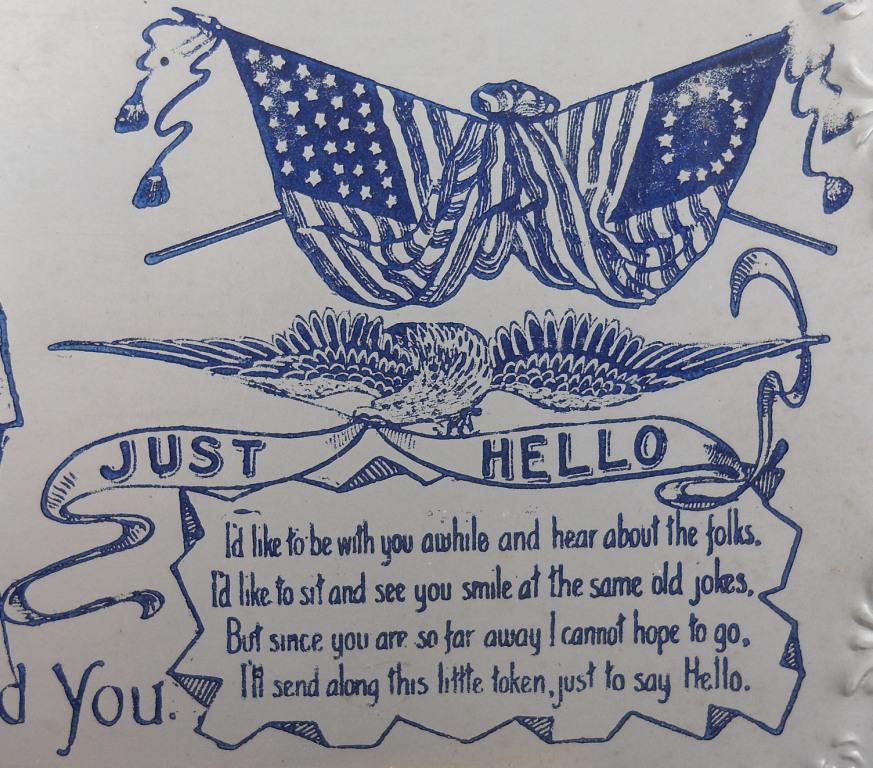 JUST HELLO
I'd like to be with you awhile and hear about the folks.
I'd like to sit and see you smile at the same old jokes.
But since you are so far away I cannot hope to go,
I'll send along this little token, just to say Hello.
d you.